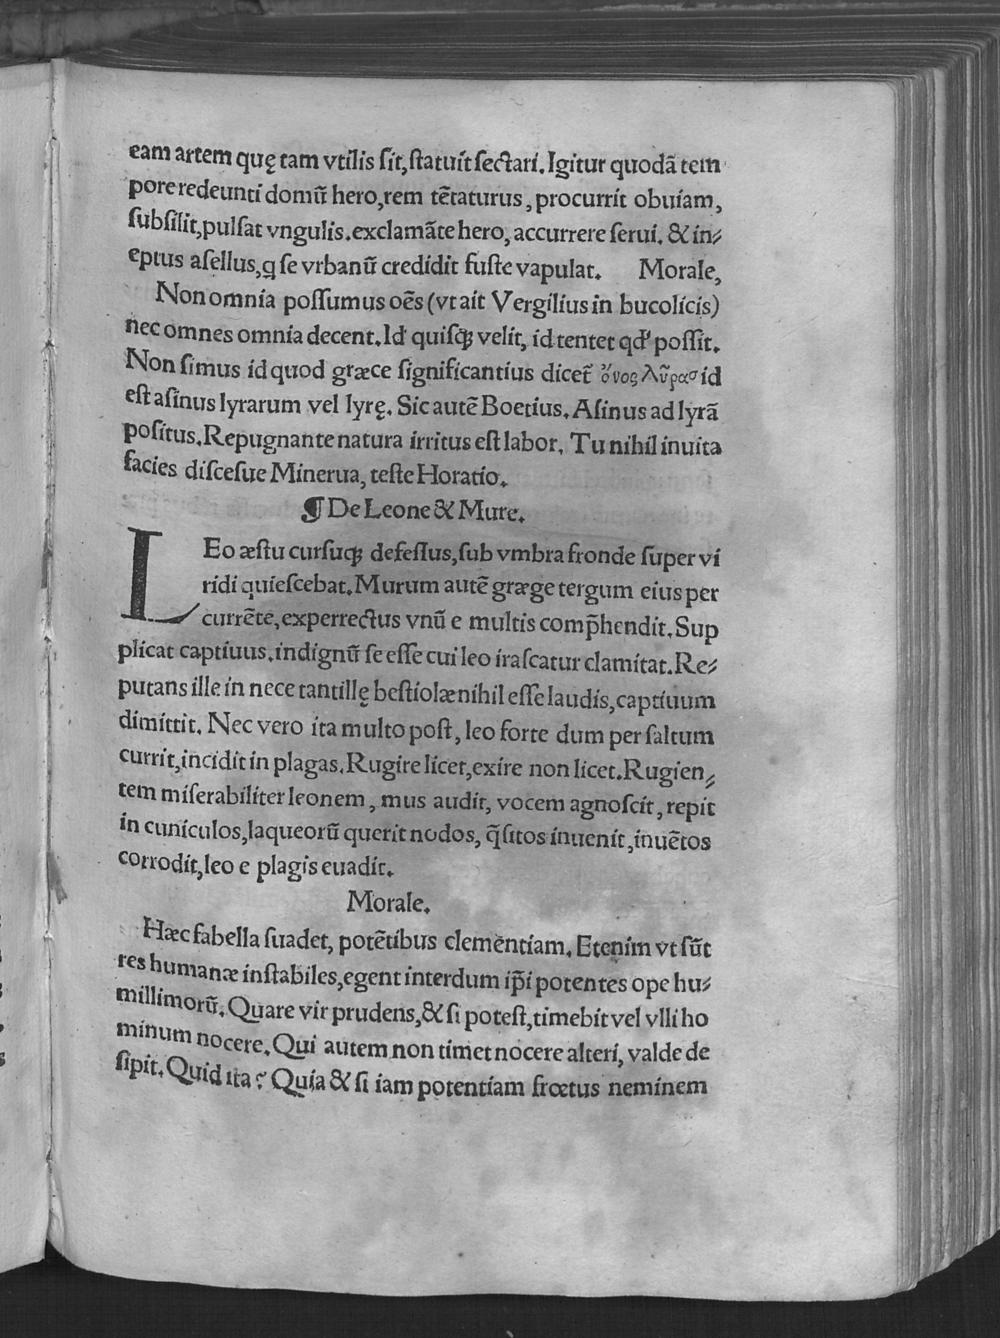 eam artem quę tam vtilis ſit, ſtatuit ſectari. Igitur quodā tem
pore redeunti domū hero, rem tētaturus, procurrit obuiam,
ſubſilit, pulſat vngulis. exclamāte hero, accurrere ſerui. & in⸗
eptus aſellus, q ſe vrbanū credidit fuſte vapulat. Morale,
Non omnia poſſumus oēs (vt ait Vergilius in bucolicis)
nec omnes omnia decent. Id quiſqꝫ velit, id tentet qđ poſſit.
Non ſimus id quod græce ſignificantius dicet᷑ ὄνος λῦρας id
eſt aſinus lyrarum vel lyrę. Sic autē Boetius. Aſinus ad lyrā
poſitus. Repugnante natura irritus eſt labor. Tu nihil inuita
facies diſceſue Minerua, teſte Horatio.
¶ De Leone & Mure.
LEo æſtu curſuqꝫ defeſſus, ſub vmbra fronde ſuper vi
ridi quieſcebat. Murum autē græge tergum eius per
currēte, experrectus vnū e multis comp̄hendit. Sup
plicat captiuus. indignū ſe eſſe cui leo iraſcatur clamitat. Re⸗
putans ille in nece tantillę beſtiolæ nihil eſſe laudis, captiuum
dimittit. Nec vero ita multo poſt, leo forte dum per ſaltum
currit, incidit in plagas. Rugire licet, exire non licet. Rugien⸗
tem miſerabiliter leonem, mus audit, vocem agnoſcit, repit
in cuniculos, laqueorū querit nodos, q̄ſitos inuenit, inuētos
corrodit, leo e plagis euadit.
Morale.
Hæc fabella ſuadet, potētibus clemētiam. Etenim vt ſūt
res humanæ inſtabiles, egent interdum ip̄i potentes ope hu⸗
millimorū. Quare vir prudens, & ſi poteſt, timebit vel vlli ho
minum nocere. Qui autem non timet nocere alteri, valde de
ſipit. Quid ita? Quia & ſi iam potentiam frœtus neminem